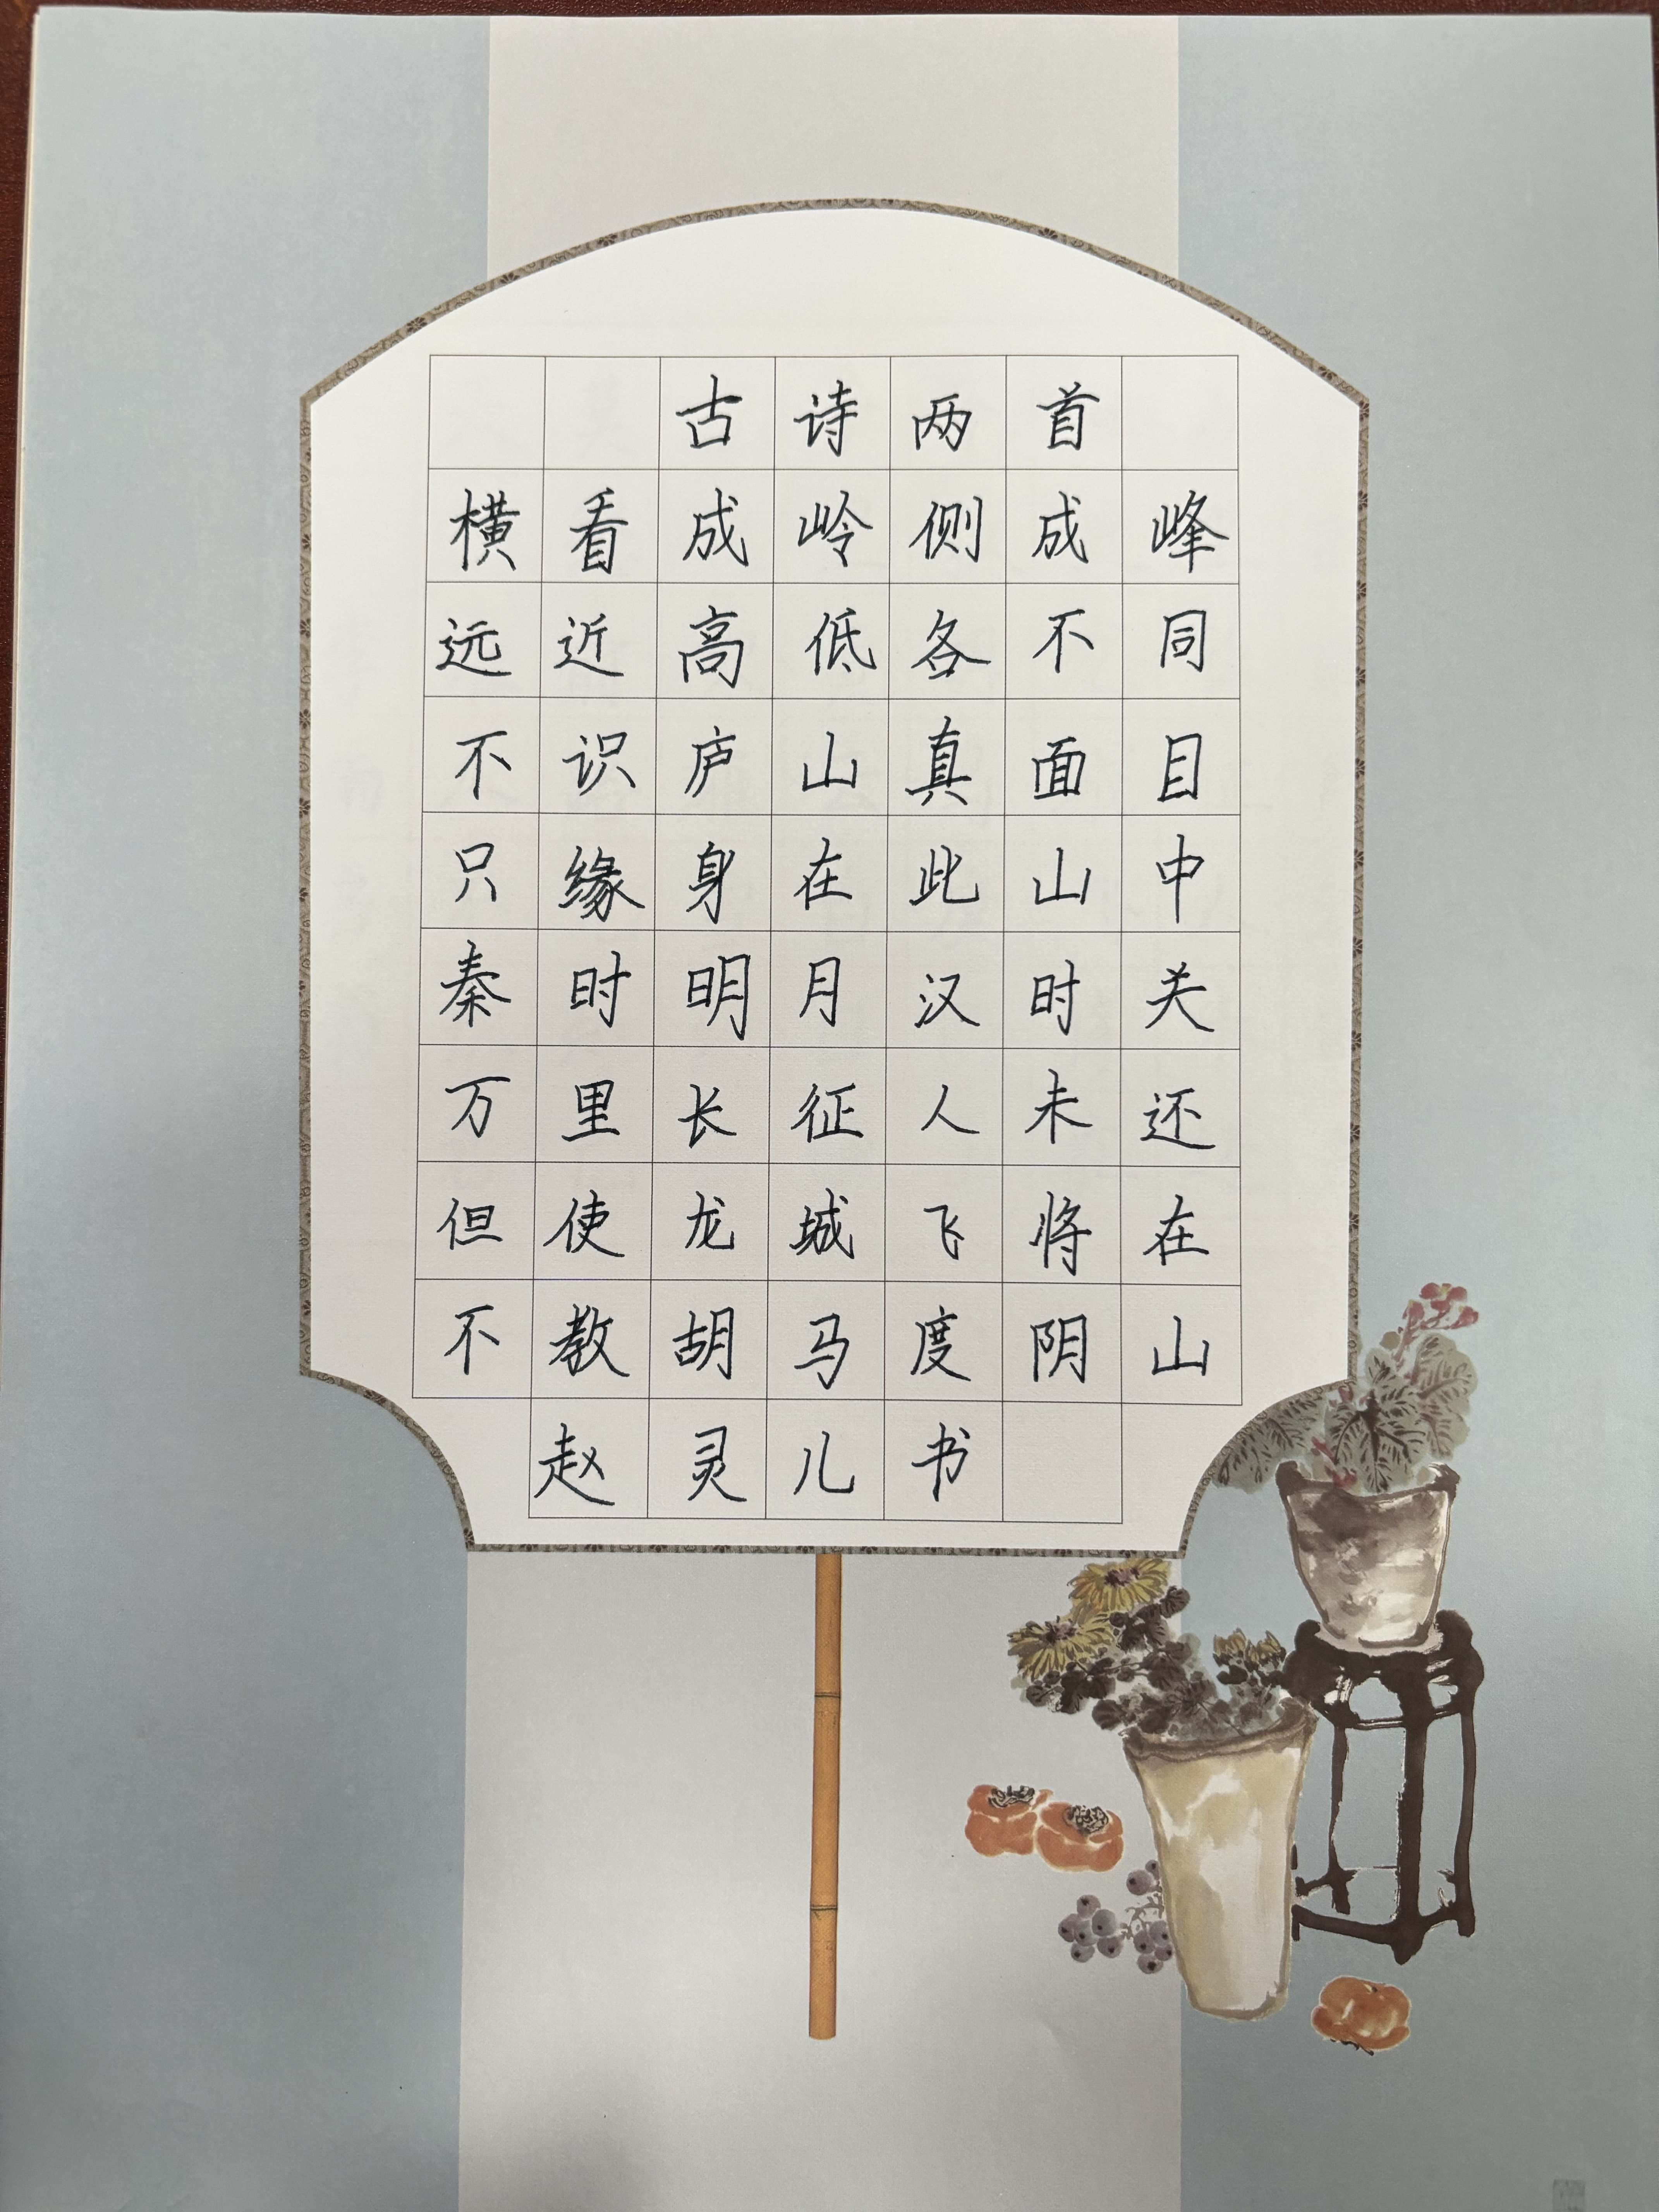 古诗两首
横看成岭侧成峰
远近高低各不同
不识庐山真面目
只缘身在此山中
秦时明月汉时关
万里长征人未还
但使龙城飞将在
不教胡马度阴山
赵灵儿书